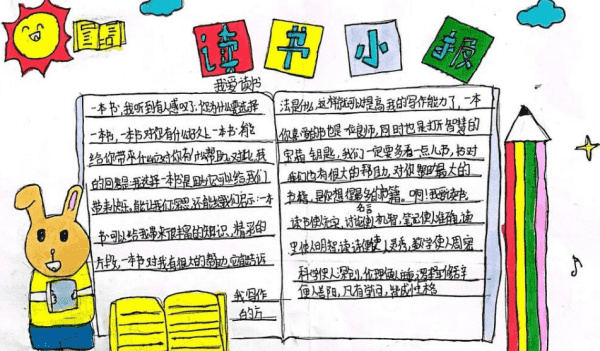 读书小报
我爱读书
一本书,我听到有人感叹,你为什么要选择
一本书,一本书对你有什么好处?一本书能
给你带来什么?对你有什么帮助。对此,我
的回答是我选择一本书是因为它可以给我们
带来快乐,能让我们深思,还能给我们启示:一本
书可以给我带来很丰富的知识、精彩的
片段,一本书对我有很大的帮助,它能告诉
我写作
的方
法是什么,这样就可以提高我的写作能力了,一本
你 的书也是一位良师,同时也是打开智慧的
宝箱钥匙,我们一定要多看一点儿书,书对
我们也有很大的帮助,对你帮助最大的
书籍,是你想得最多的书籍。啊!我爱读书,
名言
读书使 充实,讨论使人机智,笔记使人准确,读
史使人明智,读诗使人灵秀,数学使人周密
科学使人深刻,伦理使人 逻辑修辞学
使人善辩,凡有学问,皆成性格